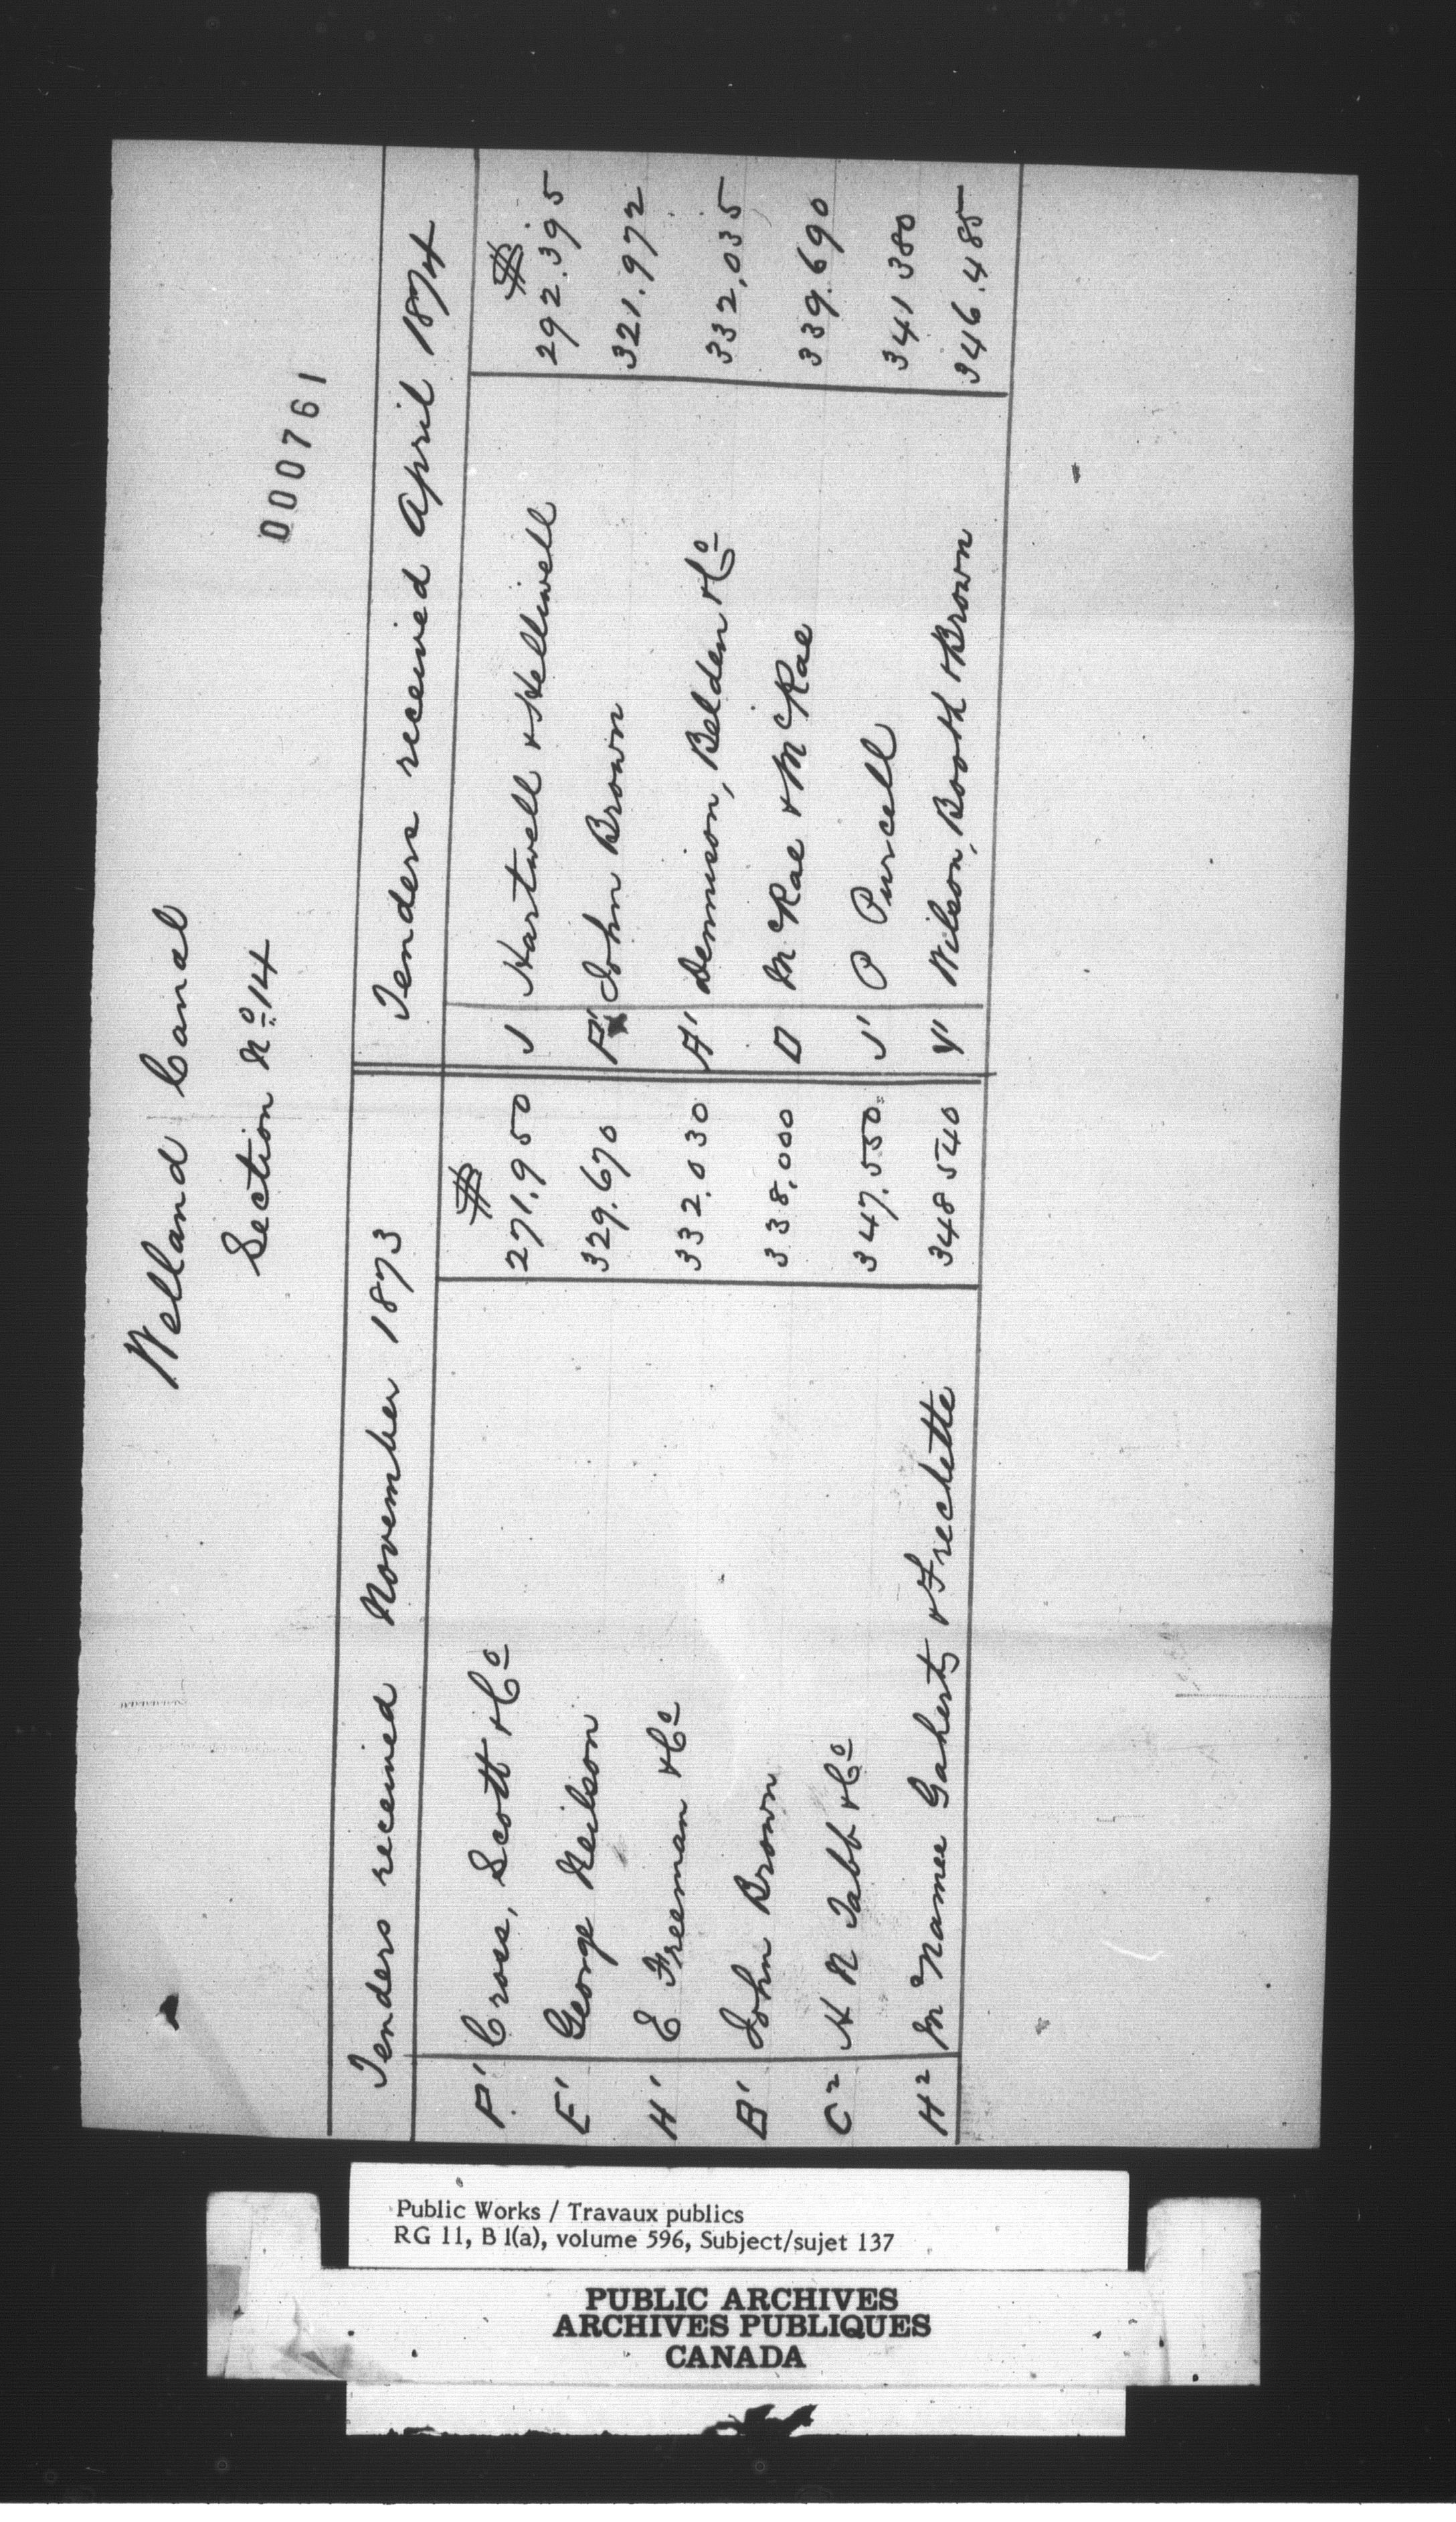 Welland Canal
Section No. 14
000761
Tenders received November 1873
$
P' Cross, Scott & Co 271.950
E' George Neilson 329.670
H' E Freeman & Co 332.030
B' John Brown 338,000
C2 H N Tabb & Co 347.550
H2 McNamee Gaherty & Frechette 348 540
Tenders received April 1874
$
J Hartwell & Helliwell 292.395
P' John Brown 321.972
A' Dennison, Belden & Co 332,035
D McRae & McRae 339.690
J' P Purcell 341 380
Y' Wilson, Booth & Brown 346.485
Public Works / Travaux publics
RG 11, B 1(a), volume 596, Subject/sujet 137
PUBLIC ARCHIVES
ARCHIVES PUBLIQUES
CANADA